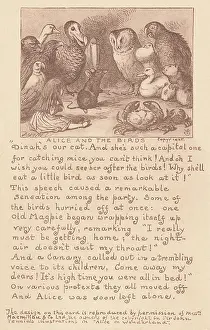 ALICE AND THE BIRDS
Dinah's our cat. And she's such a capital one
for catching mice, you can't think! And oh I
wish you could see her after the birds! Why she'll
eat a little bird as soon as look at it!"
This speech caused a remarkable
sensation among the party. Some of
the birds hurried off at once: one
old Magpie began wrapping itself up
very carefully, remarking "I really
must be getting home; the night-
air doesn't suit my throat!"
And a Canary called out in a trembling
voice to its children, Come away my
dears! It's high time you were all in bed!
On various pretexts they all moved off
And Alice was soon left alone.
The design on the card is reproduced by permission of Mess
Tenniel's illustrations to "Alice in Wonderland"